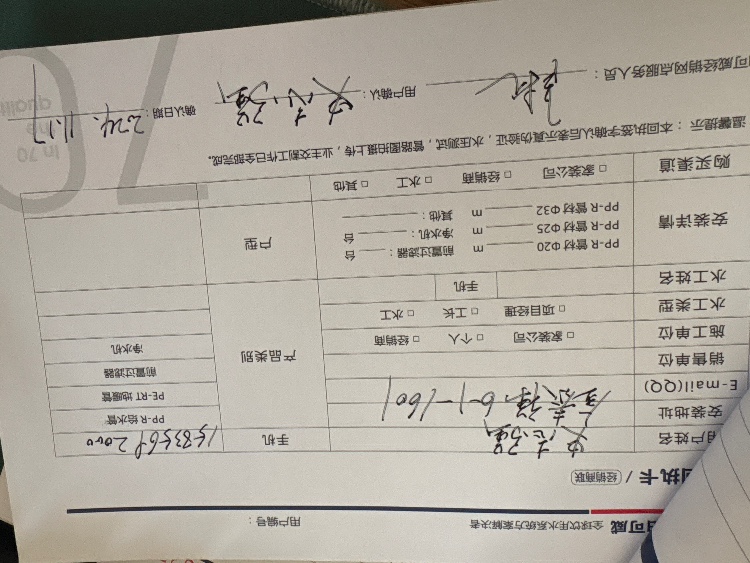 可威 全球饮用水系统方案解决者 用户编号：
回执卡 / 经销商联
用户姓名 史志强 手机
安装地址 6-1-1601
E-mail(QQ)
销售单位
施工单位 □ 家装公司 □ 个人 □ 经销商
水工类型 □ 项目经理 □ 工长 □ 水工
水工姓名 手机
产品类别
PP-R 给水管
PE-RT 地暖管
前置过滤器
净水机
安装详情
PP-R 管材 Φ20 m 前置过滤器： 台
PP-R 管材 Φ25 m 净水机： 台
PP-R 管材 Φ32 m 其他：
户型
购买渠道 □ 家装公司 □ 经销商 □ 水工 □ 其他
温馨提示：本回执签字确认后表示真伪验证，水压测试，管路图拍摄上传，业主交割工作日全部完成。
可威经销网点服务人员： 用户确认：史志强 确认日期：224.11.17
In 70
the
qualit
70